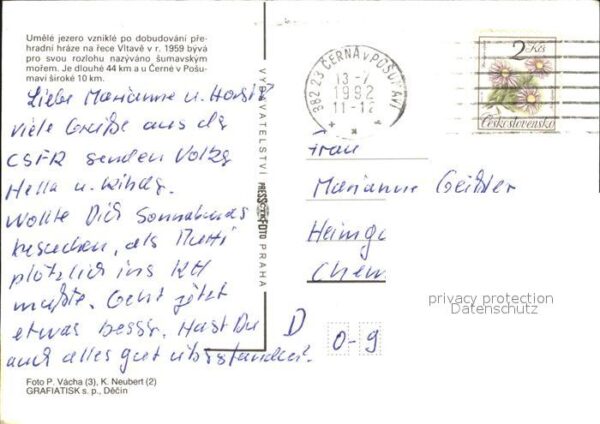 Umělé jezero vzniklé po dobudování pře-
hradní hráze na řece Vltavě v r. 1959 bývá
pro svou rozlohu nazýváno šumavským
mořem. Je dlouhé 44 km a u Černé v Pošu-
mavi široké 10 km.
Liebe Marianne u. Horst!
viele Grüße aus der
CSFR senden Volker
Hella u. Kinder.
Wollte Dich Sonnabends
besuchen, als Mutti
plötzlich ins KH
mußte. Geht jetzt
etwas besser. Hast Du
auch alles gut überstanden?
Foto P. Vácha (3), K. Neubert (2)
GRAFIATISK s. p., Děčín
VYDAVATELSTVÍ PRESSFOTO PRAHA
382 23 ČERNÁ V POŠUMAVÍ
13-7
1992
11-12
2 Kčs
Československo
Frau
Marianne
Heim
Chem
privacy protection
Datenschutz
D
0-9